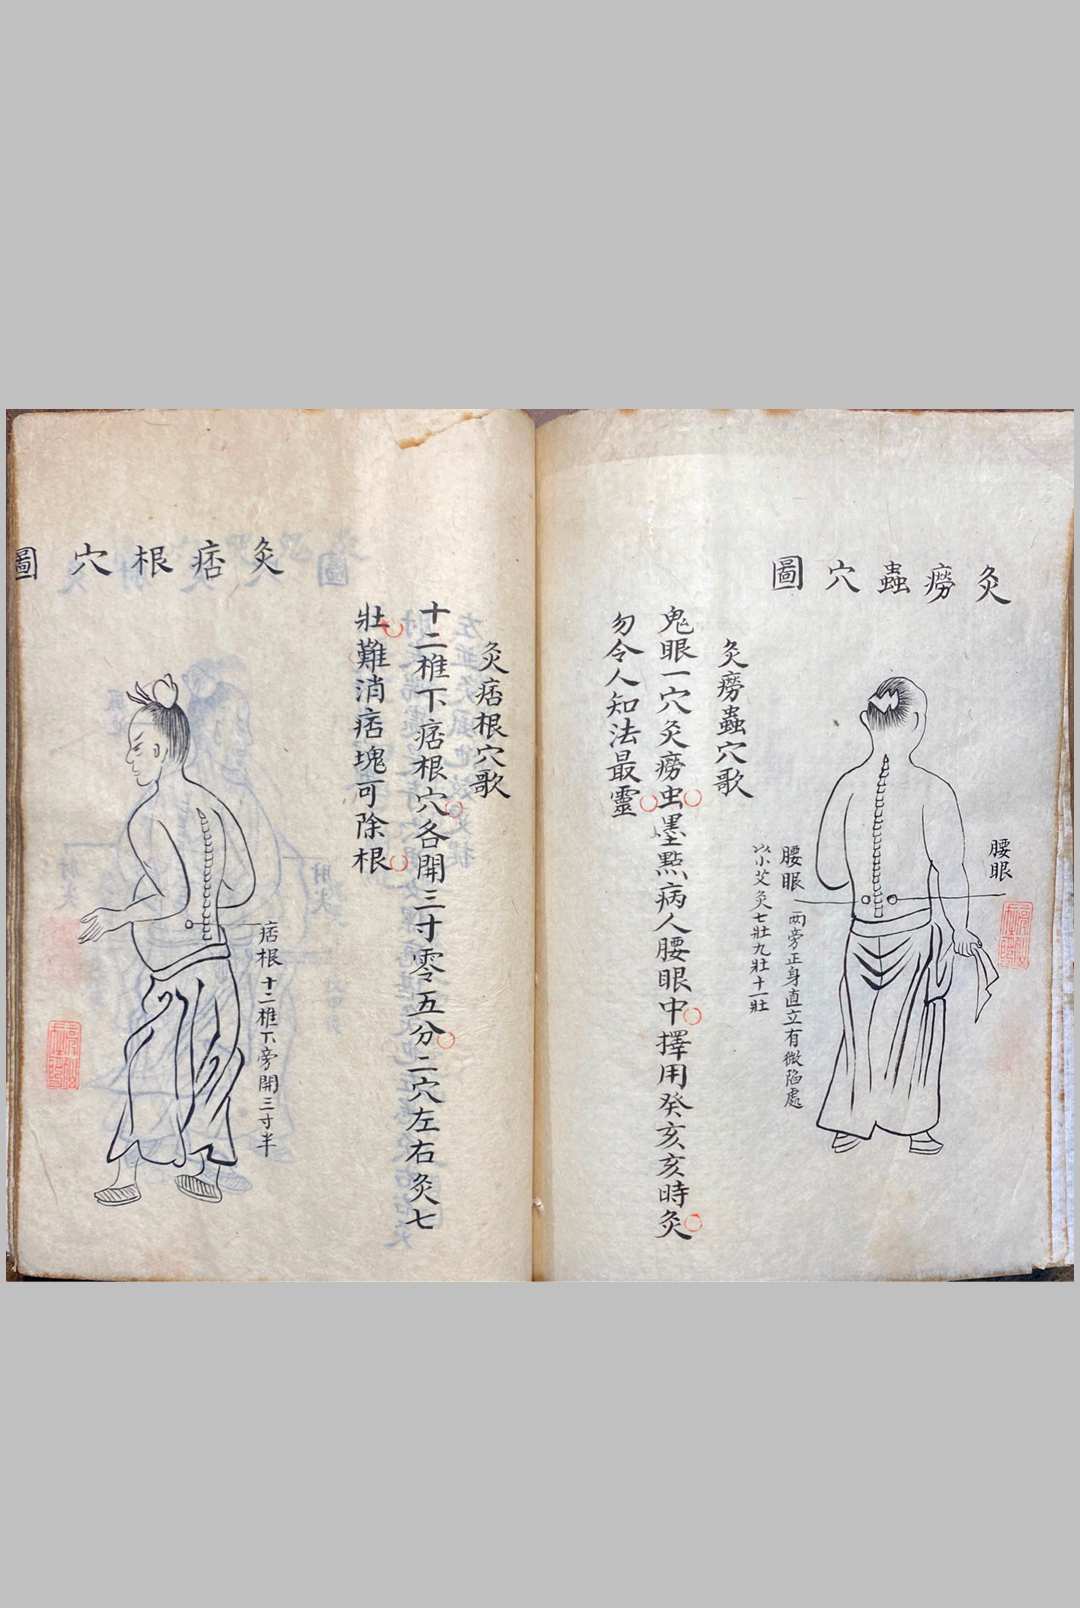 灸癆蟲穴圖
腰眼
腰眼 兩旁正身直立有微陷處
以小艾灸七壯九壯十一壯
灸癆蟲穴歌
鬼眼一穴灸癆虫墨點病人腰眼中擇用癸亥亥時灸
勿令人知法最靈
灸痞根穴歌
十二椎下痞根穴各開三寸零五分二穴左右灸七
壯難消痞塊可除根
灸痞根穴圖
痞根 十二椎下旁開三寸半